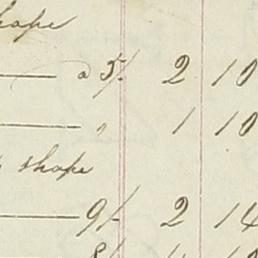 shape
— a 5/. 2 10
— " 1 10
shape
— 9/- 2 14